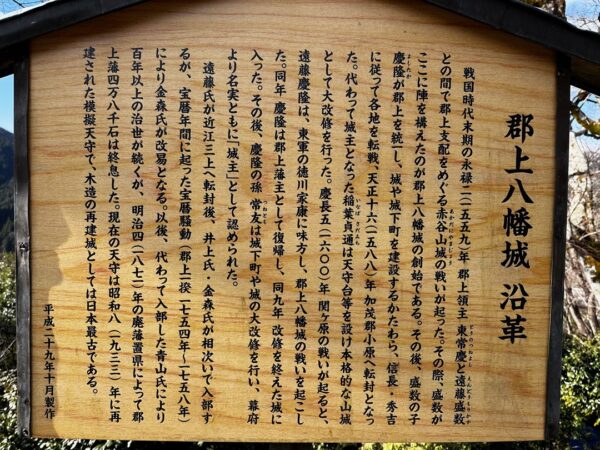 郡上八幡城 沿革
戦国時代末期の永禄二(一五五九)年、郡上領主 東常慶と遠藤盛数
との間で郡上支配をめぐる赤谷山城の戦いが起った。その際、盛数が
ここに陣を構えたのが郡上八幡城の創始である。その後、盛数の子
慶隆が郡上を統一し、城や城下町を建設するかたわら、信長・秀吉
に従って各地を転戦、天正十六(一五八八)年 加茂郡小原へ転封となっ
た。代わって城主となった稲葉貞通は天守台等を設け本格的な山城
として大改修を行った。慶長五(一六〇〇)年 関ヶ原の戦いが起ると、
遠藤慶隆は、東軍の徳川家康に味方し、郡上八幡城の戦いを起こし
た。同年 慶隆は郡上藩主として復帰し、同九年 改修を終えた城に
入った。その後、慶隆の孫 常友は城下町や城の大改修を行い、幕府
より名実ともに「城主」として認められた。
遠藤氏が近江三上へ転封後、井上氏、金森氏が相次いで入部す
るが、宝暦年間に起った宝暦騒動(郡上一揆 一七五四年〜一七五八年)
により金森氏が改易となる。以後、代わって入部した青山氏により
百年以上の治世が続くが、明治四(一八七一)年の廃藩置県によって郡
上藩四万八千石は終息した。現在の天守は昭和八(一九三三)年に再
建された模擬天守で、木造の再建城としては日本最古である。
平成二十九年十月製作